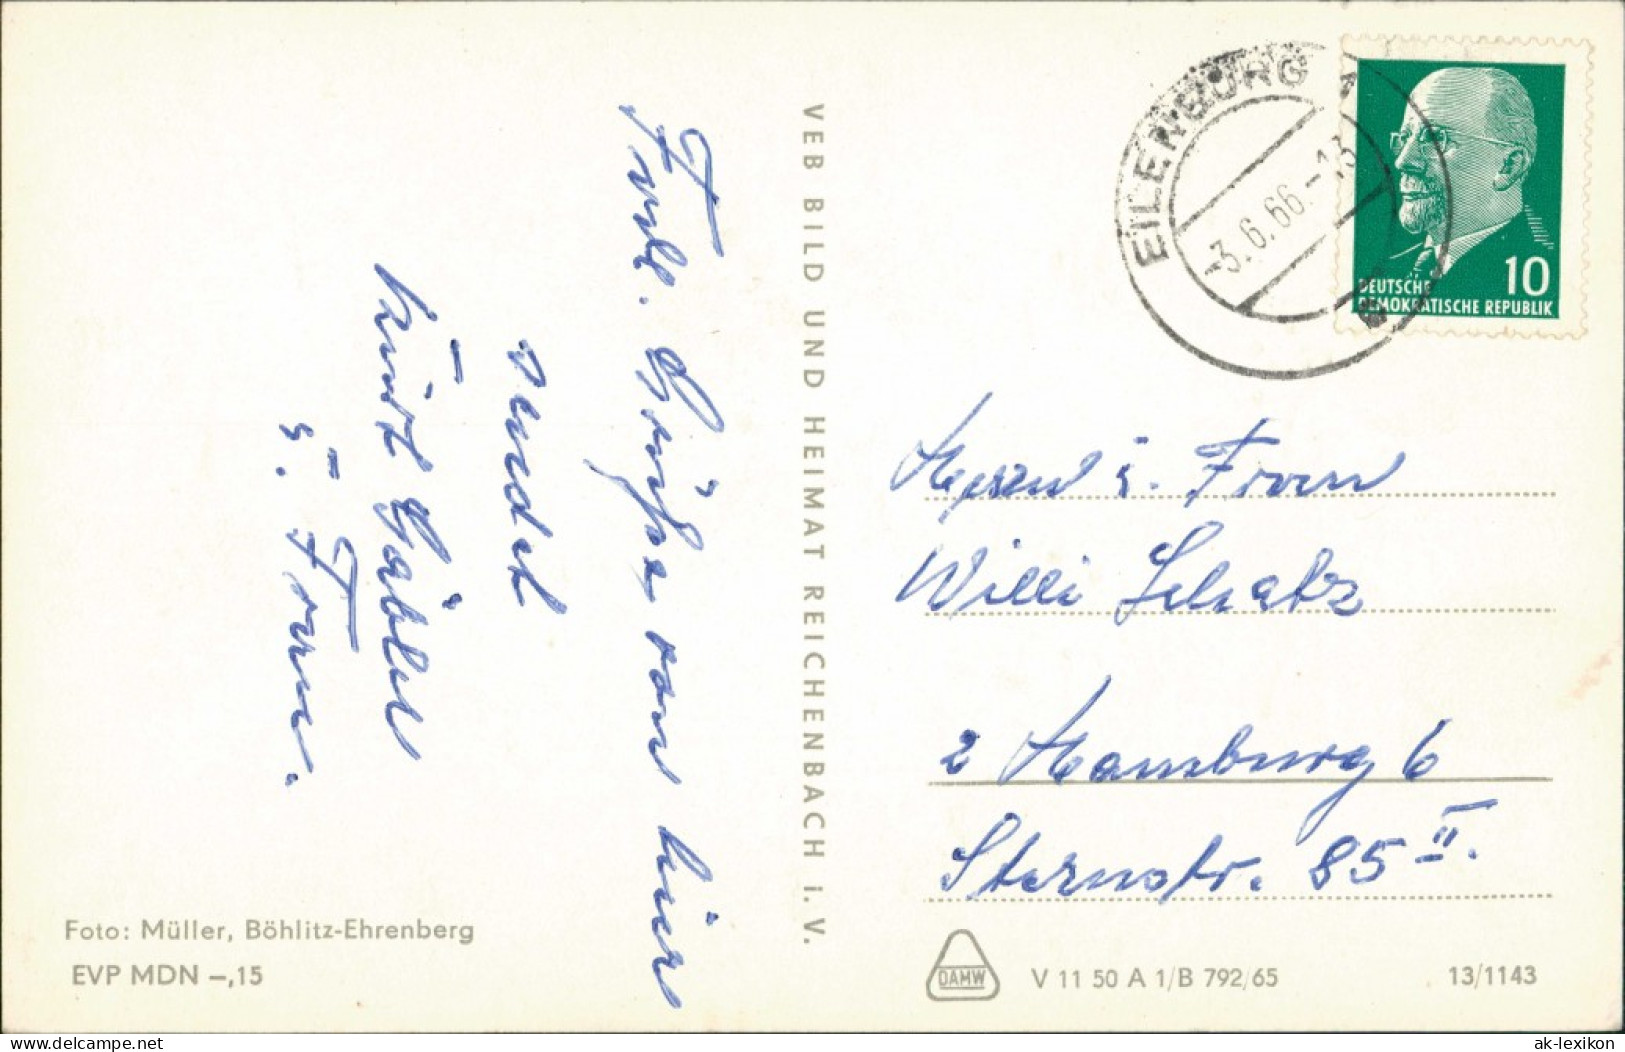 Frdl. Grüße von hier
sendet
Kurt Gäbler
u. Frau.
VEB BILD UND HEIMAT REICHENBACH i. V.
EILENBURG 1
-3.6.66.-13
10
DEUTSCHE
DEMOKRATISCHE REPUBLIK
Herrn u. Frau
Willi Schatz
2 Hamburg 6
Sternstr. 85 II.
Foto: Müller, Böhlitz-Ehrenberg
EVP MDN –,15
DAMW
V 11 50 A 1/B 792/65
13/1143
www.delcampe.net
ak-lexikon